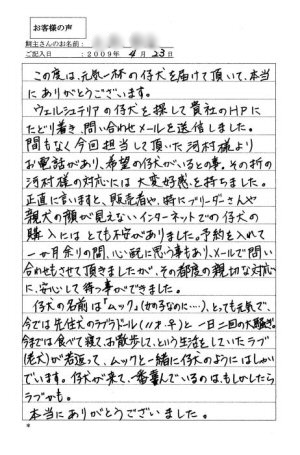 お客様の声
飼主さんのお名前：
ご記入日：２００９年 4月 23日
この度は、元気一杯の仔犬を届けて頂いて、本当
にありがとうございます。
ウェルシュテリアの仔犬を探して貴社のHPに
たどり着き、問い合わせメールを送信しました。
間もなく今回担当して頂いた河村様より
お電話があり、希望の仔犬がいるとの事。その折の
河村様の対応には大変好感を持ちました。
正直に言いますと、販売者や、特にブリーダーさんや
親犬の顔が見えないインターネットでの仔犬の
購入にはとても不安がありました。予約を入れて
一か月余りの間、心配に思う事もあり、メールで問い
合わせもさせて頂きましたが、その都度の親切な対応
に、安心して待つ事ができました。
仔犬の名前は「ムック」(女の子なのに…)、とっても元気で、
今では先住犬のラブラドール(11才・♀)と一日二回の大騒ぎ。
今までは食べて寝て、お散歩して、という生活をしていたラブ
(老犬)が若返って、ムックと一緒に仔犬のようにはしゃい
でいます。仔犬が来て、一番喜んでいるのは、もしかしたら
ラブかも。
本当にありがとうございました。